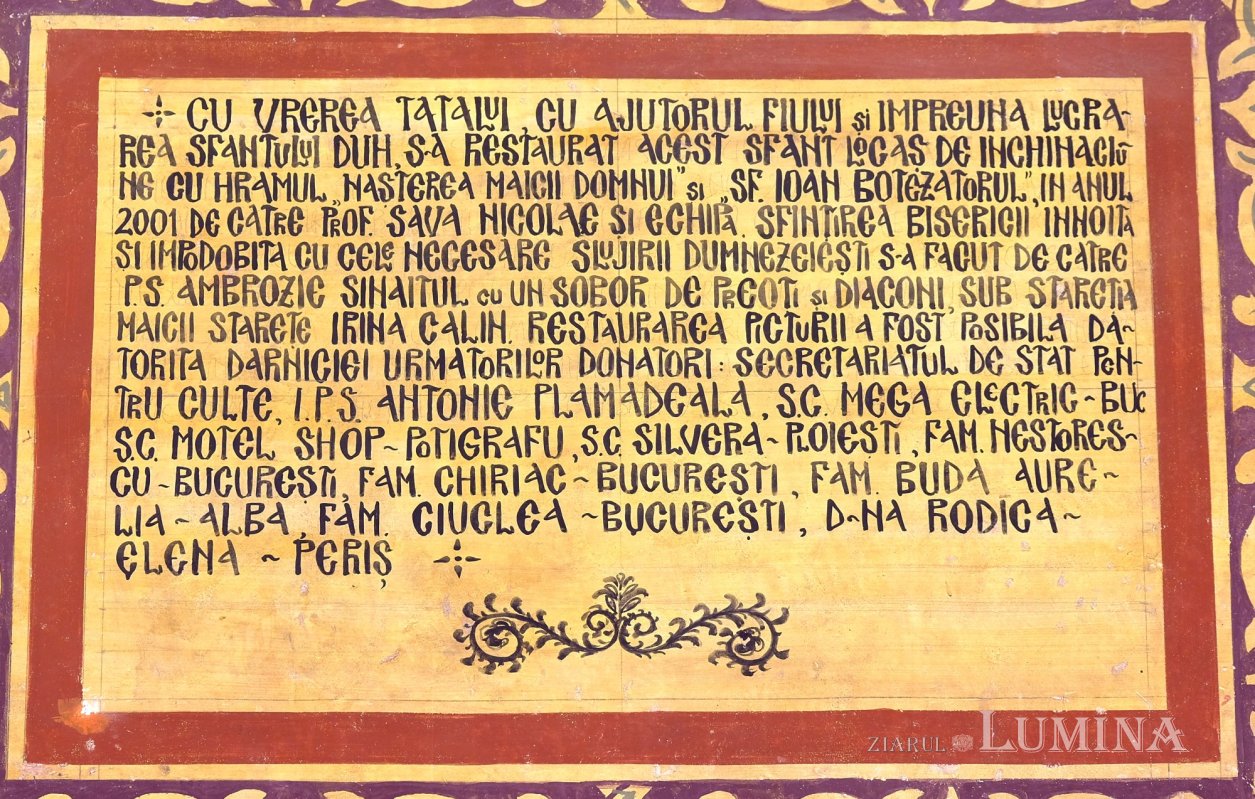 CU VREREA TATALUI, CU AJUTORUL FIULUI și IMPREUNA LUCRA-
REA SFANTULUI DUH, S-A RESTAURAT ACEST SFANT LOCAS DE INCHINACIU
NE CU HRAMUL „NASTEREA MAICII DOMNUI" și „SF. IOAN BOTEZATORUL", IN ANUL
2001 DE CATRE PROF. SAVA NICOLAE ȘI ECHIPA. SFINȚIREA BISERICII INNOITA
ȘI IMPODOBITA CU CELE NECESARE SLUJIRII DUMNEZEIEȘTI S-A FACUT DE CATRE
P.S. AMBROZIE SINAITUL cu UN SOBOR DE PREOȚI și DIACONI, SUB STAREȚIA
MAICII STAREȚE IRINA CALIN. RESTAURAREA PICTURII A FOST POSIBILA DA~
TORITA DARNICIEI URMATORILOR DONATORI: SECRETARIATUL DE STAT PEN-
TRU CULTE, I.P.S. ANTONIE PLAMADEALA, S.C. MEGA ELECTRIC~BUC
S.C. MOTEL SHOP~POTIGRAFU, S.C. SILVERA~PLOIEȘTI, FAM. NESTORES~
CU~BUCUREȘTI, FAM. CHIRIAC~BUCUREȘTI, FAM. BUDA AURE~
LIA~ALBA, FAM. CIUCLEA ~BUCUREȘTI, D~NA RODICA~
ELENA ~ PERIȘ
ZIARUL LUMINA